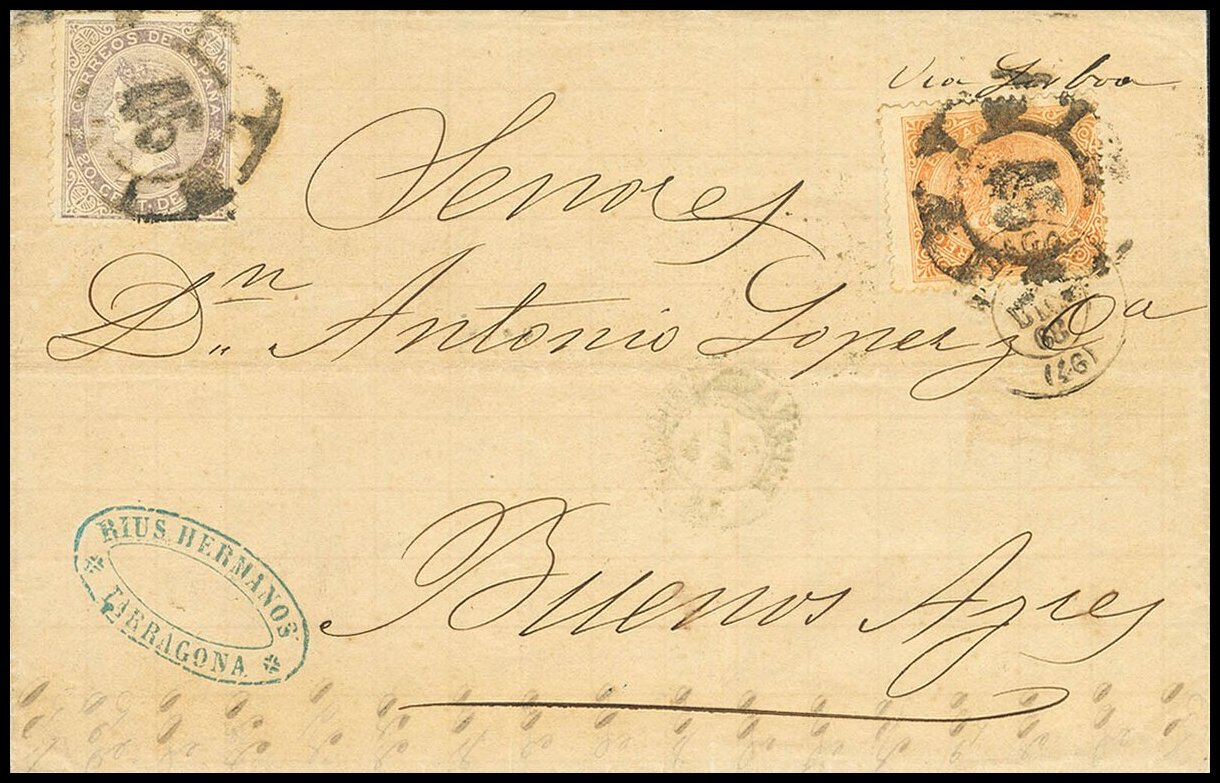 CORREOS DE ESPAÑA
20 CENT. DE
Via Lisboa
Senores
Dn. Antonio Lopez y Ca
68
(46)
Buenos Ayres
RIUS HERMANOS
TARRAGONA